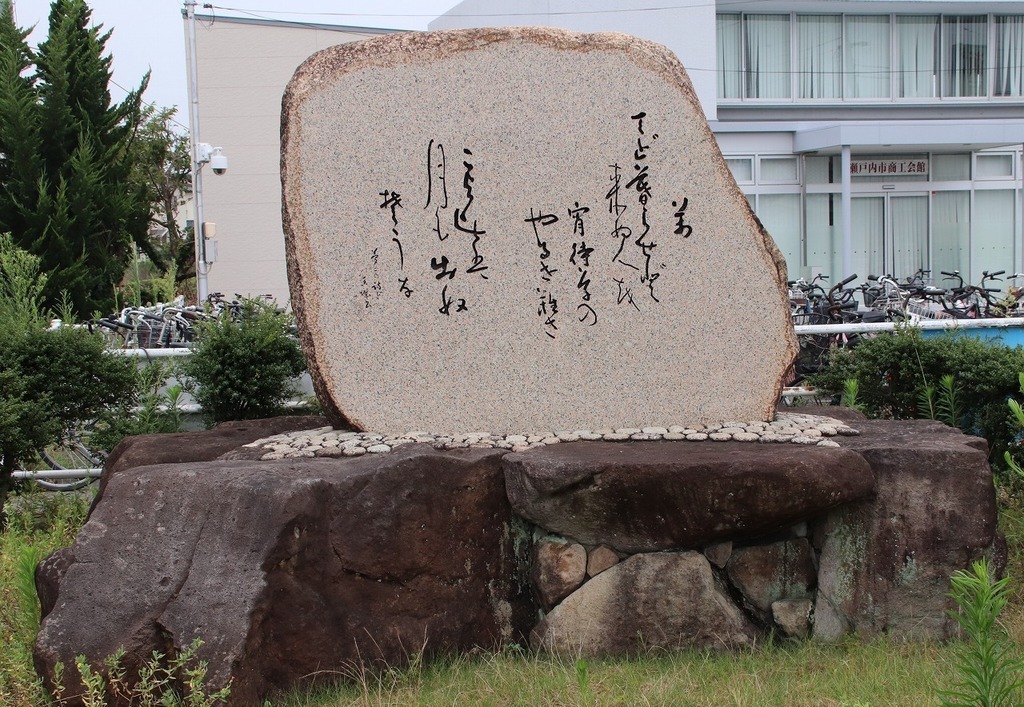 まてど暮らせど
来ぬ人を
宵待草の
やるせ難さ
こよひは
月も出奴
楚うな
瀬戸内市商工会館